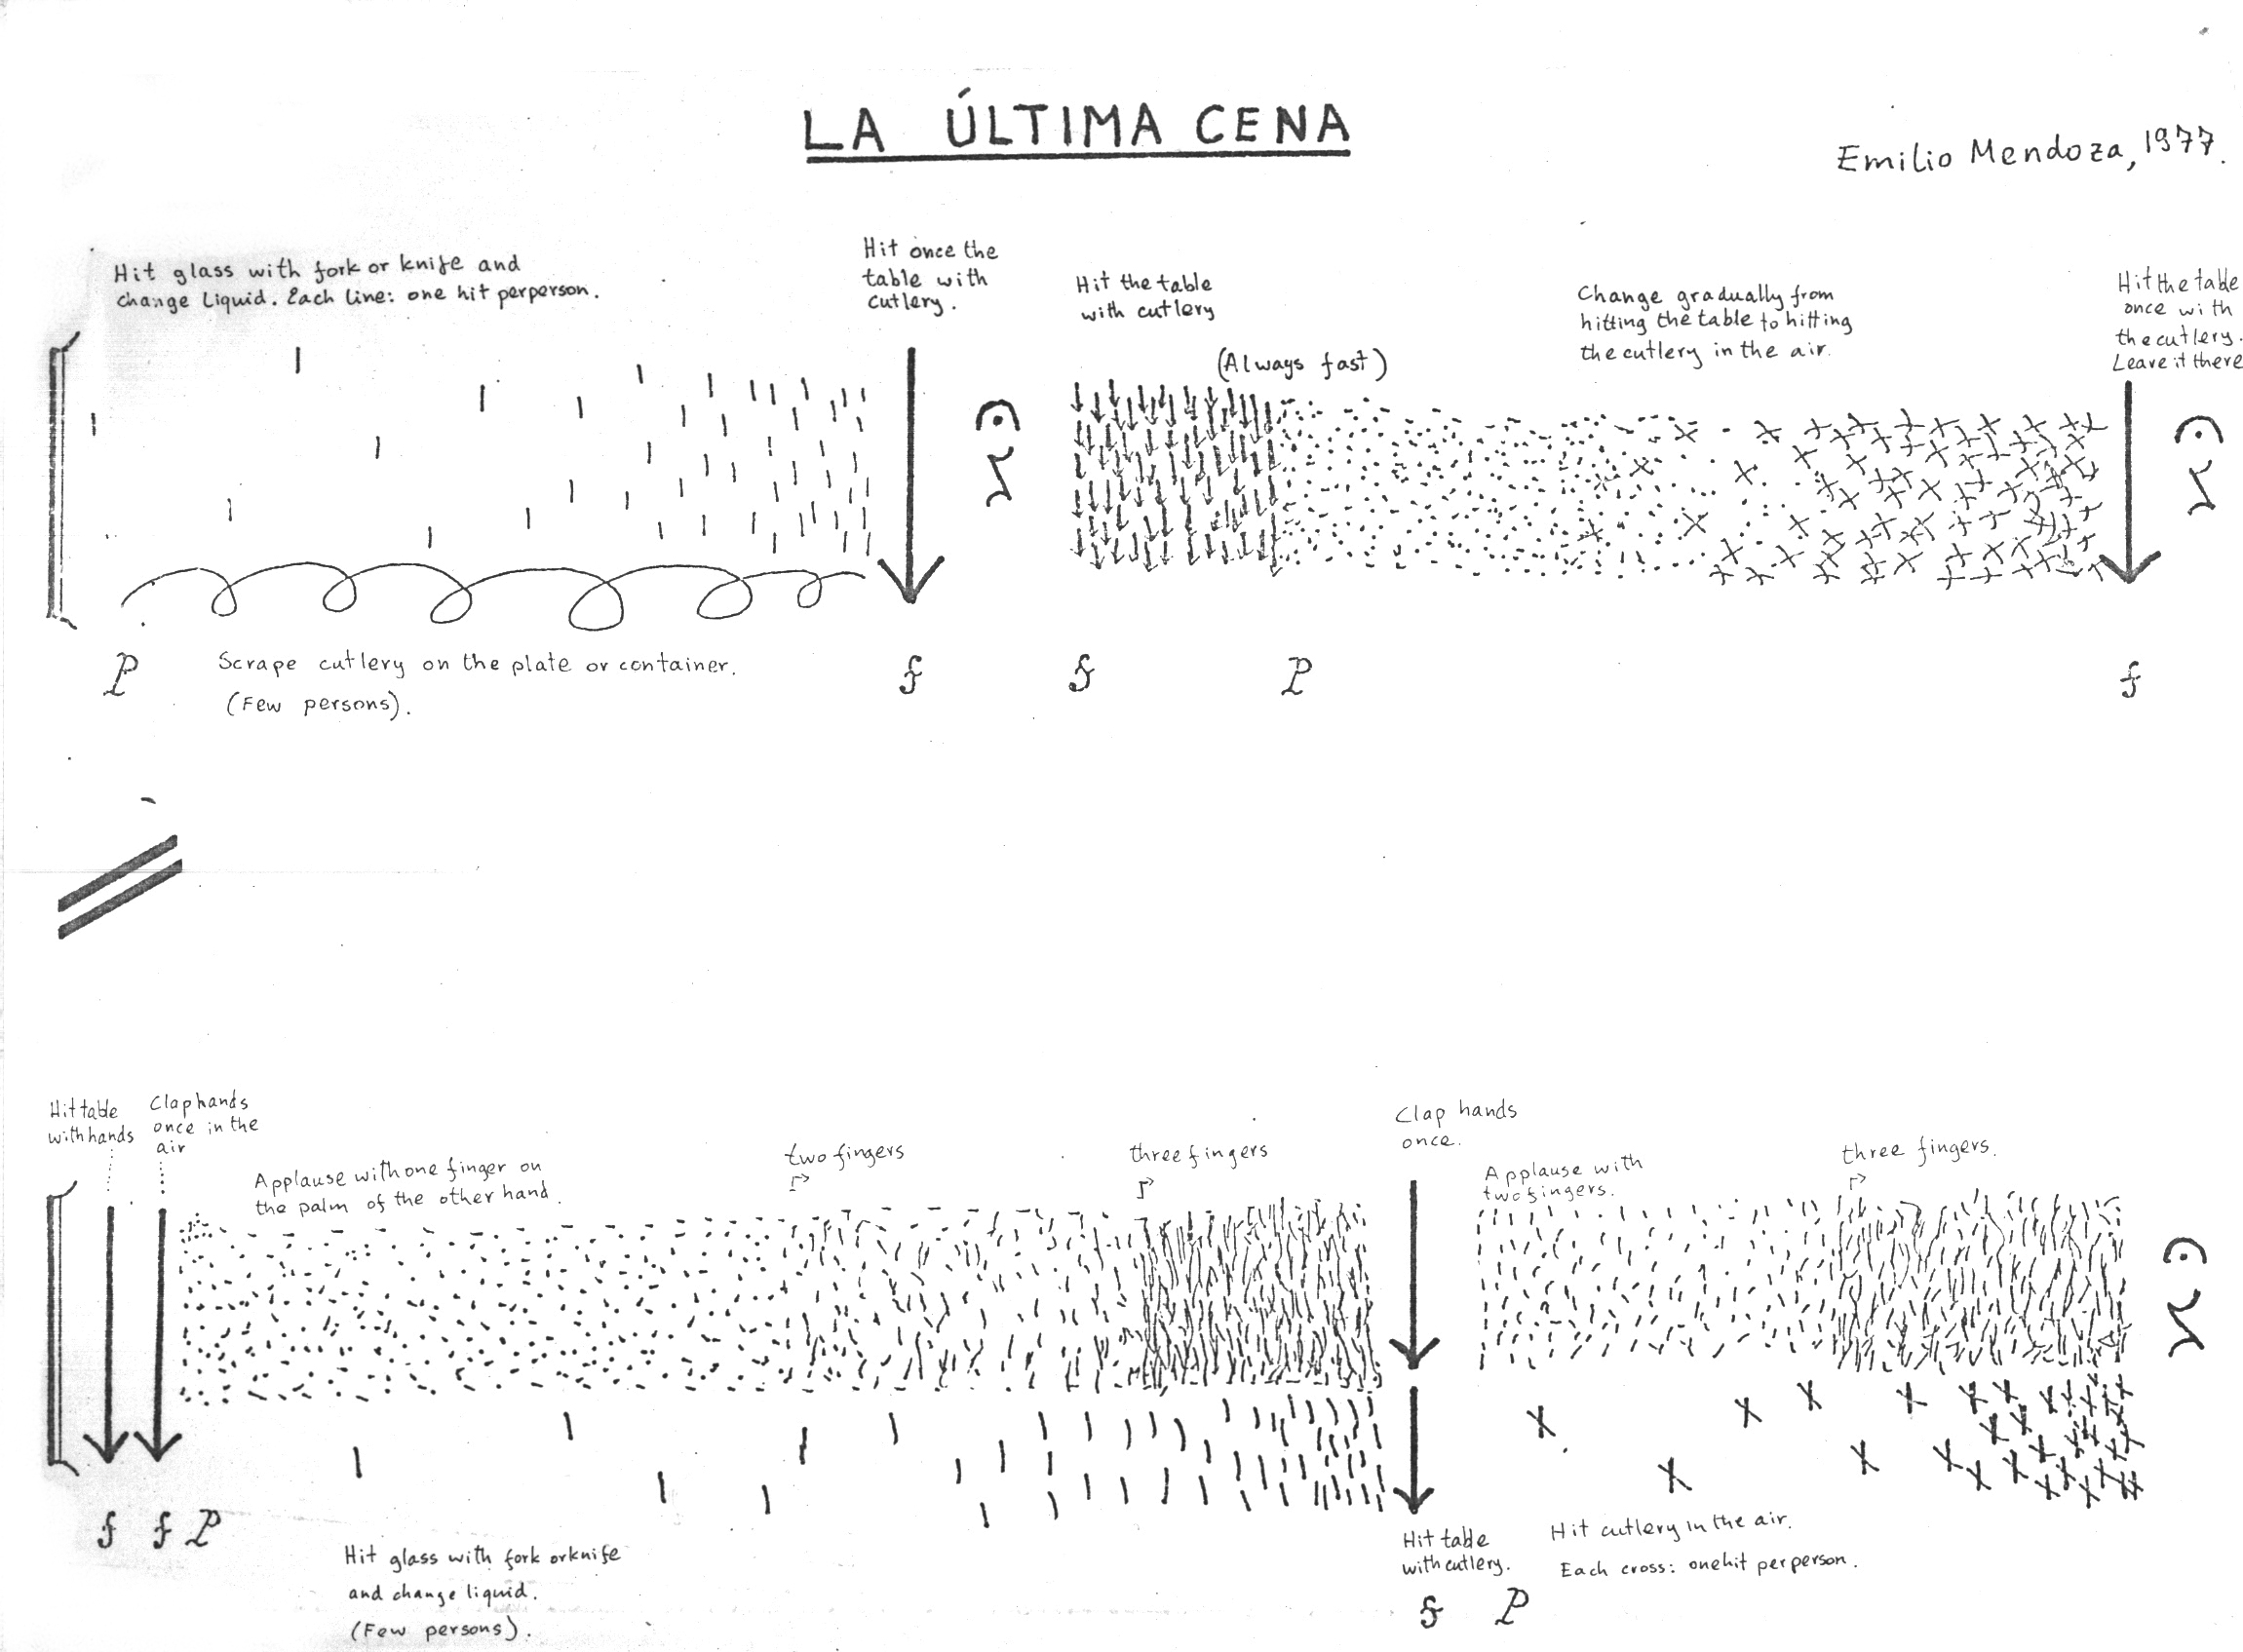 LA ÚLTIMA CENA
Emilio Mendoza, 1977.
Hit glass with fork or knife and
change Liquid. Each line: one hit per person.
Hit once the
table with
cutlery.
Hit the table
with cutlery
(Always fast)
Change gradually from
hitting the table to hitting
the cutlery in the air.
Hit the table
once with
the cutlery.
Leave it there
P
Scrape cutlery on the plate or container.
(Few persons).
f
f
P
f
Hit table
with hands
Clap hands
once in the
air
Applause with one finger on
the palm of the other hand.
two fingers
three fingers
Clap hands
once.
Applause with
two fingers.
three fingers.
f f P
Hit glass with fork or knife
and change liquid.
(Few persons).
Hit table
with cutlery.
f P
Hit cutlery in the air.
Each cross: one hit per person.